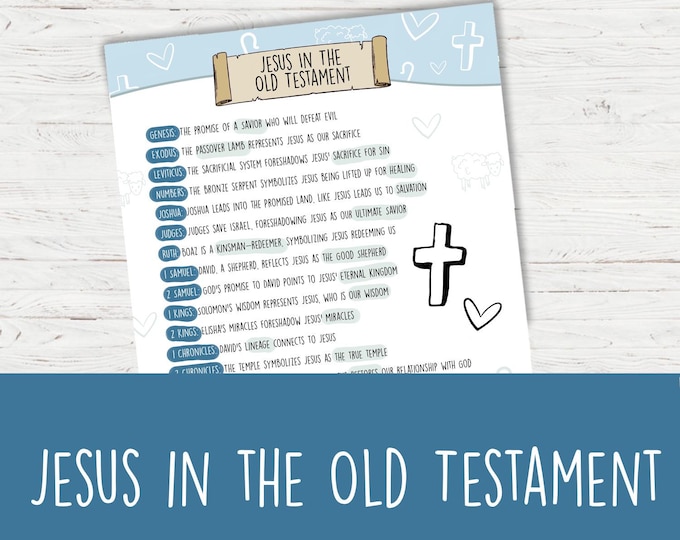 JESUS IN THE
OLD TESTAMENT
GENESIS: THE PROMISE OF A SAVIOR WHO WILL DEFEAT EVIL
EXODUS: THE PASSOVER LAMB REPRESENTS JESUS AS OUR SACRIFICE
LEVITICUS: THE SACRIFICIAL SYSTEM FORESHADOWS JESUS' SACRIFICE FOR SIN
NUMBERS: THE BRONZE SERPENT SYMBOLIZES JESUS BEING LIFTED UP FOR HEALING
JOSHUA: JOSHUA LEADS INTO THE PROMISED LAND, LIKE JESUS LEADS US TO SALVATION
JUDGES: JUDGES SAVE ISRAEL, FORESHADOWING JESUS AS OUR ULTIMATE SAVIOR
RUTH: BOAZ IS A KINSMAN-REDEEMER, SYMBOLIZING JESUS REDEEMING US
1 SAMUEL: DAVID, A SHEPHERD, REFLECTS JESUS AS THE GOOD SHEPHERD
2 SAMUEL: GOD'S PROMISE TO DAVID POINTS TO JESUS' ETERNAL KINGDOM
1 KINGS: SOLOMON'S WISDOM REPRESENTS JESUS, WHO IS OUR WISDOM
2 KINGS: ELISHA'S MIRACLES FORESHADOW JESUS' MIRACLES
1 CHRONICLES: DAVID'S LINEAGE CONNECTS TO JESUS
2 CHRONICLES: THE TEMPLE SYMBOLIZES JESUS AS THE TRUE TEMPLE
RESTORES OUR RELATIONSHIP WITH GOD
JESUS IN THE OLD TESTAMENT